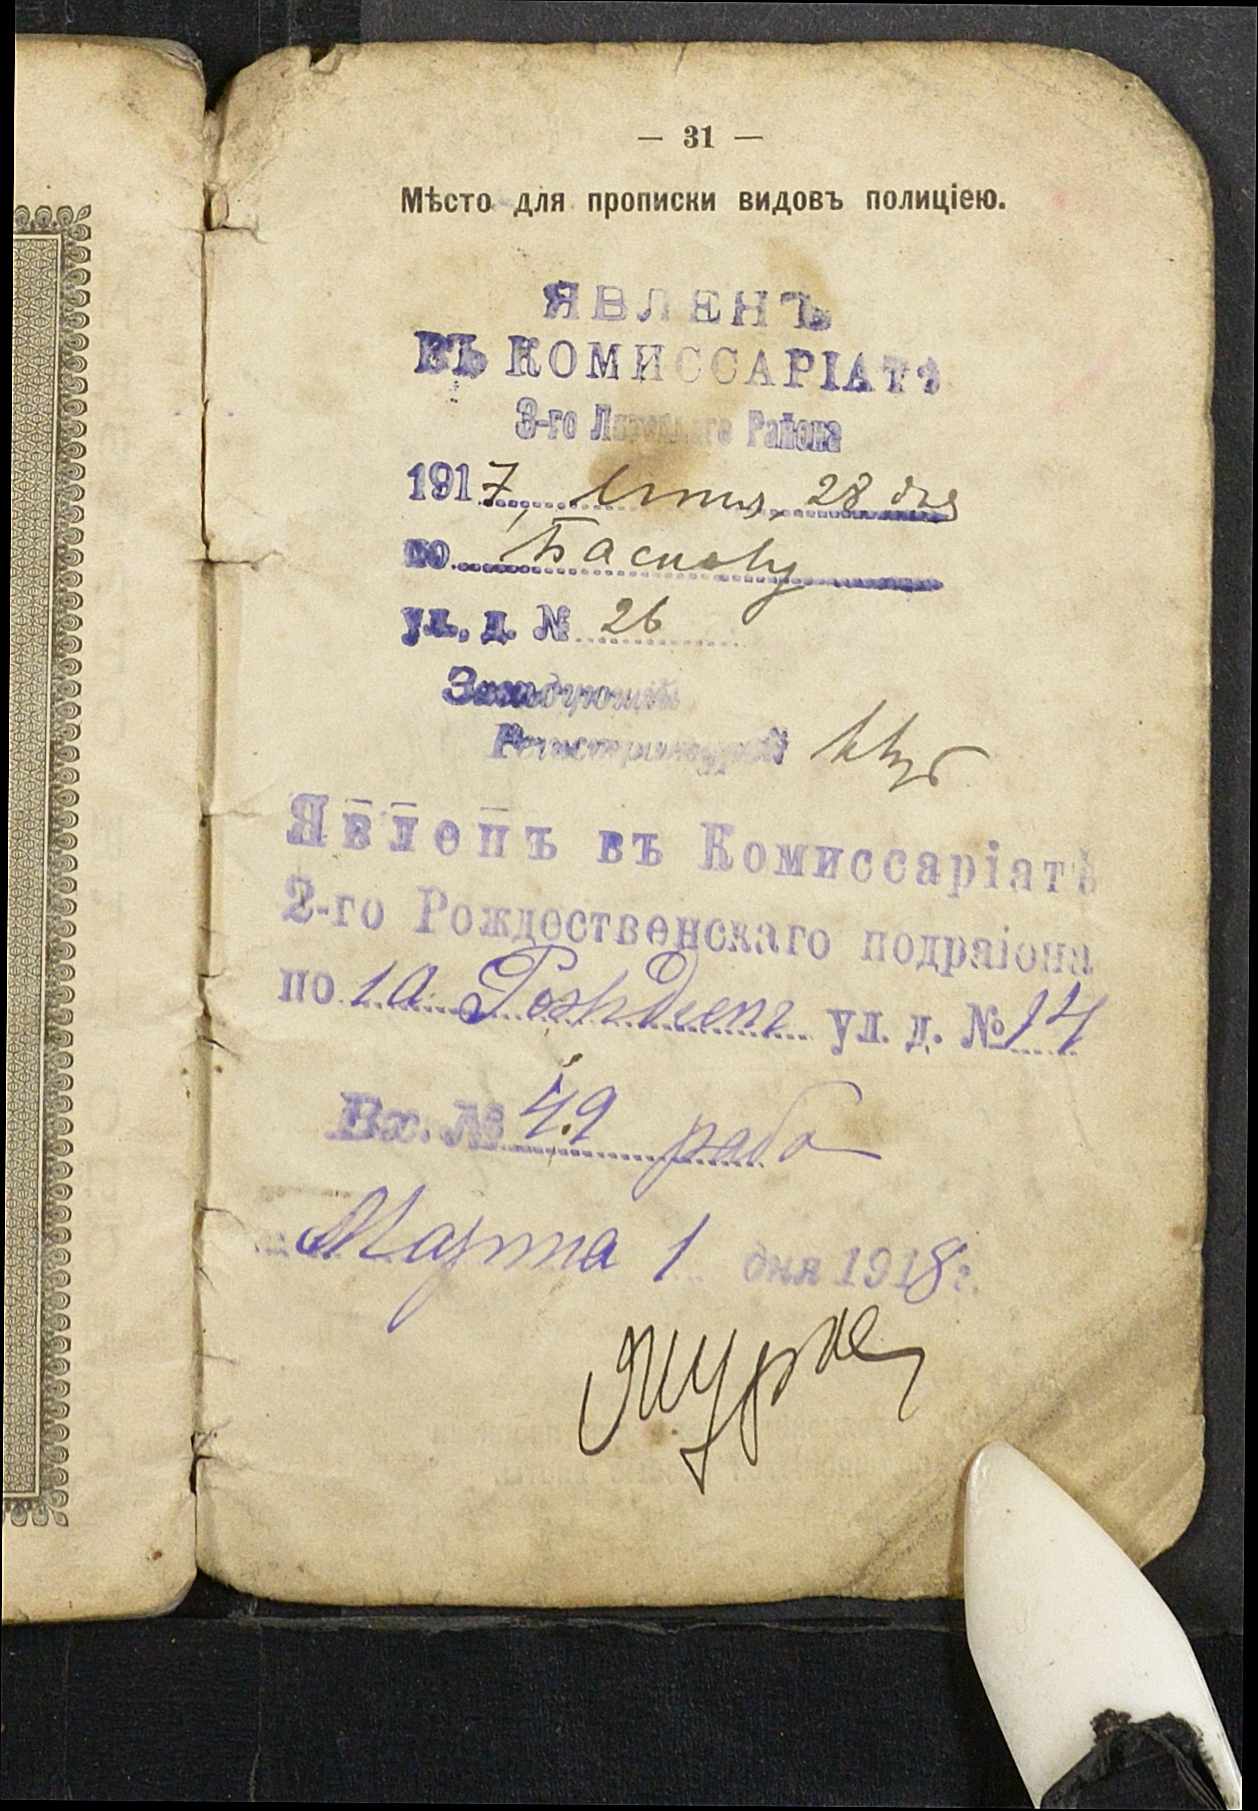 — 31 —
Мѣсто для прописки видовъ полиціею.
ЯВЛЕНЪ
ВЪ КОМИССАРІАТѢ
3-го Литейнаго Района
1917, 28 дня
по Баскову
ул., д. № 26
Завѣдующій
Регистратурой
Явленъ въ Комиссаріатѣ
2-го Рождественскаго подраіона
по 1й Рождест ул. д. № 14
Вх. № 49 рабо
Марта 1 дня 1918 г.